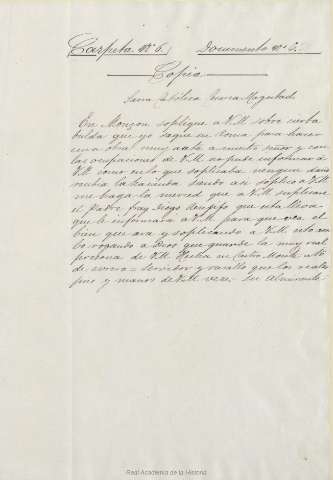 Carpeta nº 6. Documento nº
Copia
Sacra Católica Cesarea Magestad
En Monçon soplique a V.M. sobre cierta
bulda que yo saque en Roma para hacer
una obra muy a nuestro señor y con
las ocupaciones de V.M. no pude informar a
V.M. como en lo que soplicaba nengun daño
recibia la hacienda soplico a V.M.
me haga la merced que a V.M. suplicare
el Padre fray Diego que esta lleva
que le informara a V.M. para que vea el
bien que ara y soplicando a V.M. esto
bo rogando a Dios que guarde la muy real
persona de V.M. Hecha en Castro Monte a
de enero = servidor y vasallo que los reales
pies y manos de V.M. vesa. El Almirante.
Real Academia de la Historia